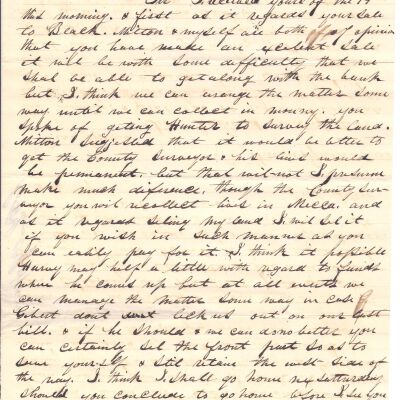 Received yours of the 19
this morning. & first as it regards your sale
to Black. Milton & myself are both of opinion
that you have make an excelent sale
it will be with some difficulty that we
shal be able to get along with the bank
but I think we can arange the matter some
way until we can collect in mony. you
spoke of geting Hunter to survey the land.
Milton suggested that it would be better to
get the County Surveyor & his lines would
be permanent. but that will not I presum
make much difference. though the County Sur-
veyor you will recollect lives in Mecca. and
as it regards seling my land I will sel it
if you wish in such manner as you
can easily pay for it. I think it possible
Harvey may help a little with regard to funds
when he comes up but at all events we
can manage the matter some way in case
Gibert dont lick us out on our
bill. & if he should & we can do no better you
can certainly sel the front part so as to
save yourself & stil retain the west side of
the way. I think I shall go home saturday
should you conclude to go home before I see you